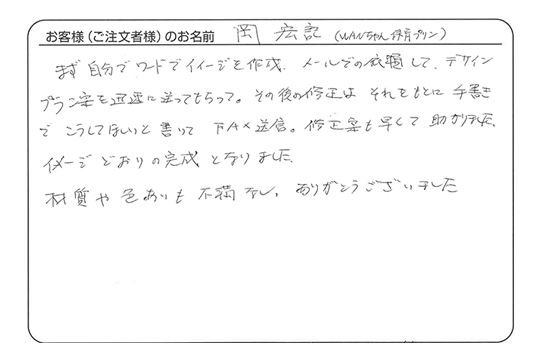 お客様（ご注文者様）のお名前 岡 宏記（WANちゃん保育プリン）
まず自分でワードでイメージを作成、メールでの依頼して、デザイン
プラン案を迅速に送ってもらって。その後の修正は それをもとに 手書き
で こうしてほしいと 書いて FAX送信。修正案も早くて 助かりました。
イメージ どおりの完成 となりました。
材質や 色あいも 不満なし。ありがとうございました